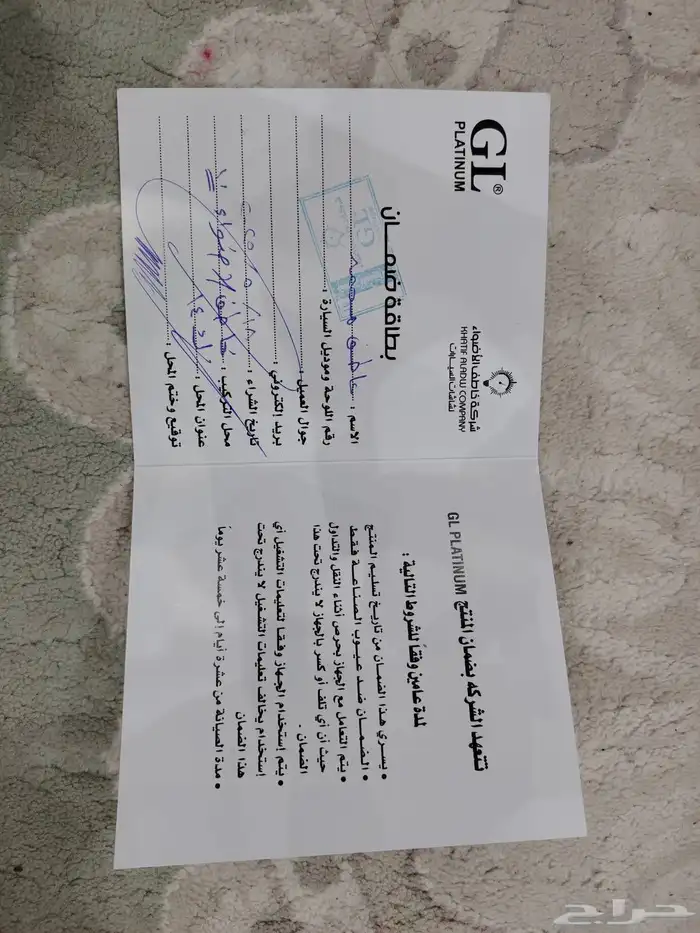 GL®
PLATINUM
شركة خاطف الأضواء
KHATIF ALADWA COMPANY
لشاشات السيارات
بطاقة ضمان
الاسم :
رقم اللوحة وموديل السيارة :
جوال العميل :
بريد إلكتروني :
تاريخ الشراء :
محل التركيب : خاطف الاضواء
عنوان المحل :
توقيع وختم المحل :
تتعهد الشركه بضمان المنتج GL PLATINUM
لمدة عامين وفقاً للشروط التالية :
• يسري هذا الضمان من تاريخ تسليم المنتج
• الضمان ضد عيوب الصناعة فقط
• يتم التعامل مع الجهاز بحرص أثناء النقل والتداول
حيث أن أي تلف أو كسر بالجهاز لا يندرج تحت هذا
الضمان .
• يتم إستخدام الجهاز وفقاً لتعليمات التشغيل أي
إستخدام يخالف تعليمات التشغيل لا يندرج تحت
هذا الضمان
• مدة الصيانة من عشرة أيام إلى خمسة عشر يوماً
حراج